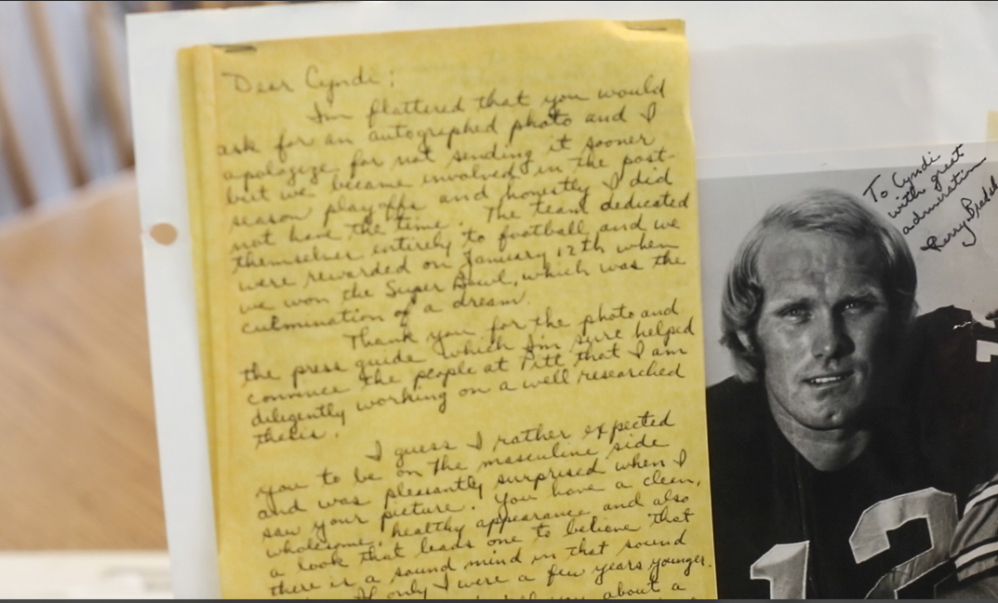 Dear Cyndi:
I'm flattered that you would
ask for an autographed photo and I
apologize for not sending it sooner
but we became involved in the post-
season playoffs and honestly I did
not have the time. The team dedicated
themselves entirely to football and we
were rewarded on January 12th when
we won the Super Bowl, which was the
culmination of a dream.
Thank you for the photo and
the press guide which I'm sure helped
convince the people at Pitt that I am
diligently working on a well researched
thesis.
I guess I rather expected
you to be on the masculine side
and was pleasantly surprised when I
saw your picture. You have a clean,
wholesome, healthy appearance and also
a look that leads one to believe that
there is a sound mind in that sound
If only I were a few years younger.
you about a
To Cyndi
with great
admiration
Terry Brads
12
7